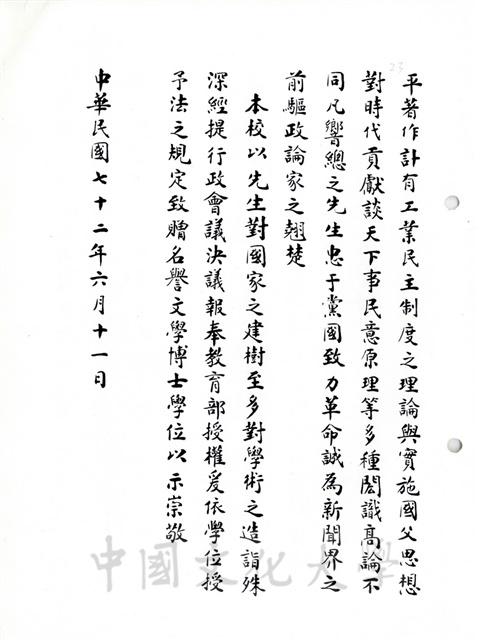 23
平著作計有工業民主制度之理論與實施國父思想
對時代貢獻談天下事民意原理等多種閎識高論不
同凡響總之先生忠于黨國致力革命誠為新聞界之
前驅政論家之翹楚
本校以先生對國家之建樹至多對學術之造詣殊
深經提行政會議決議報奉教育部授權爰依學位授
予法之規定致贈名譽文學博士學位以示崇敬
中華民國七十二年六月十一日
中國文化大學